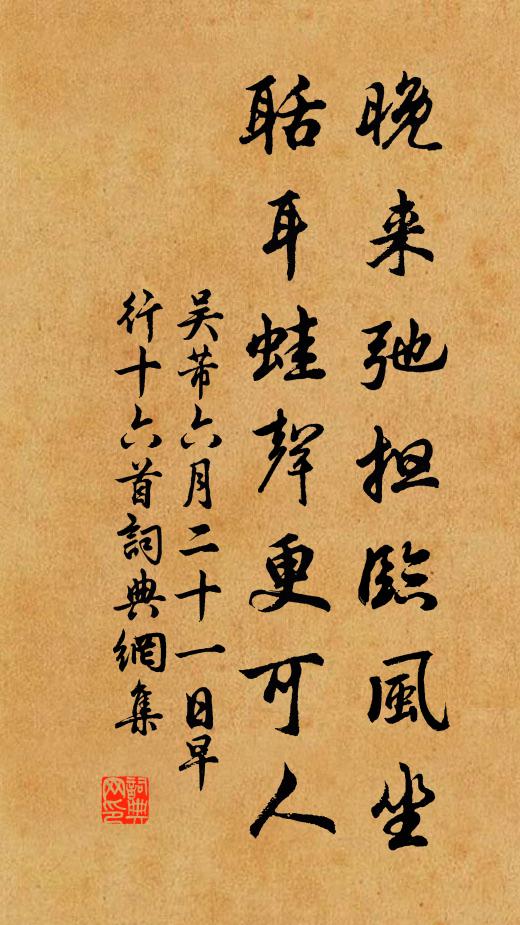 晚来弛担臨風坐
聒耳蛙聲更可人
吴芾六月二十一日早
行十六首詞典網集
詞典
网印